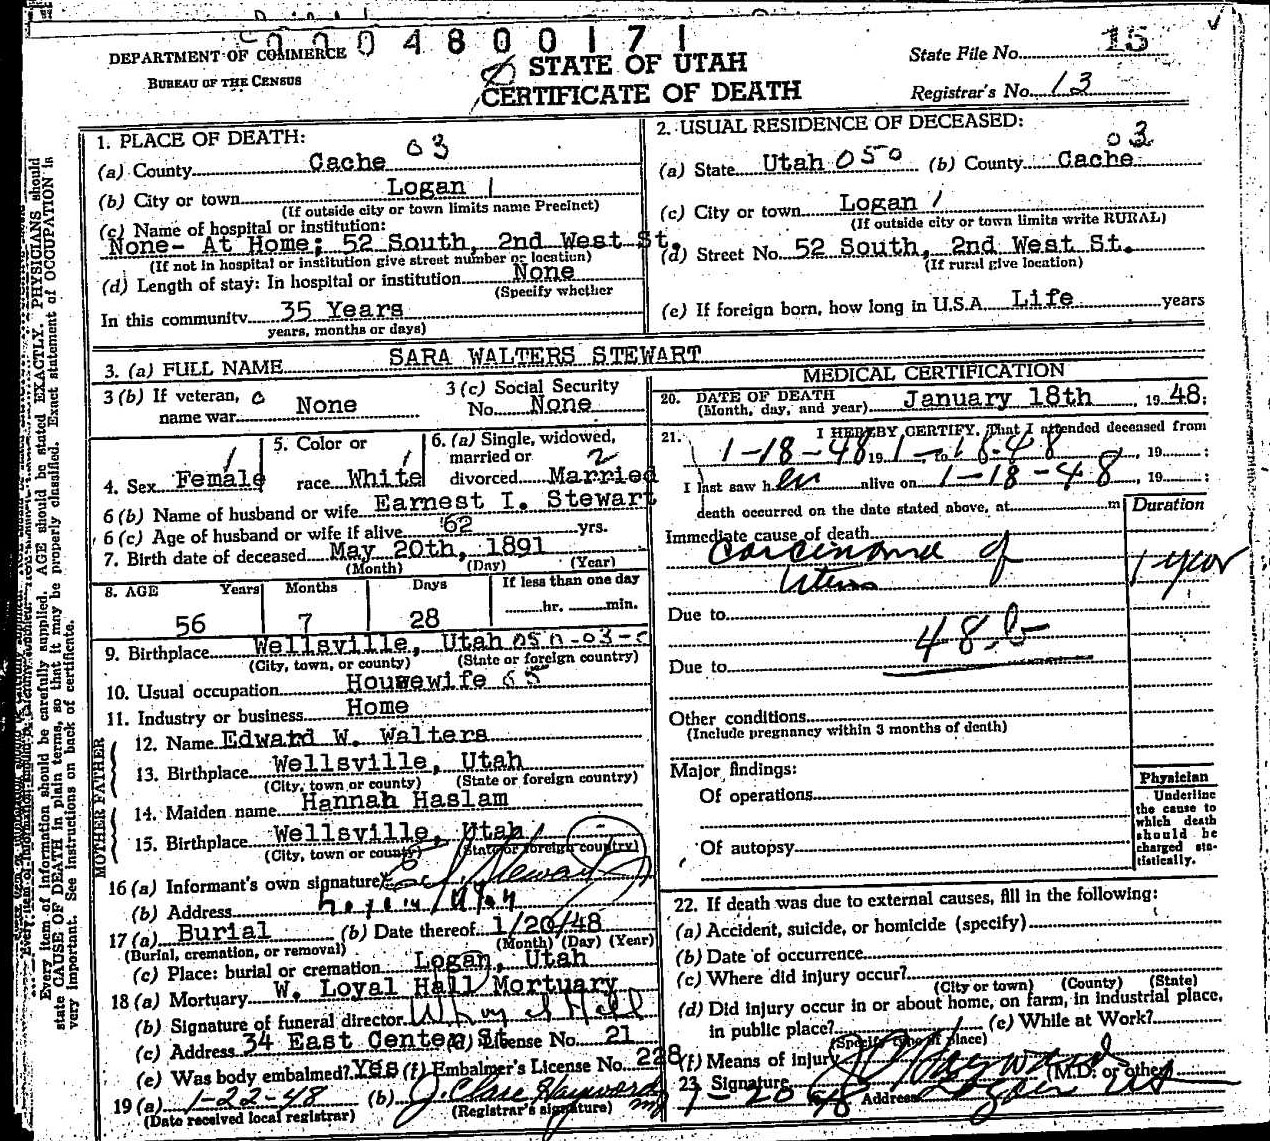 0 0 0 4 8 0 0 1 7 1
DEPARTMENT OF COMMERCE
BUREAU OF THE CENSUS
STATE OF UTAH
CERTIFICATE OF DEATH
State File No. 15
Registrar's No. 13
Every item of information should be carefully supplied. AGE should be stated EXACTLY. PHYSICIANS should
state CAUSE OF DEATH in plain terms, so that it may be properly classified. Exact statement of OCCUPATION is
very important. See instructions on back of certificate.
1. PLACE OF DEATH:
(a) County Cache 03
(b) City or town Logan 1
(If outside city or town limits name Precinct)
(c) Name of hospital or institution:
None- At Home; 52 South, 2nd West St.
(If not in hospital or institution give street number or location)
(d) Length of stay: In hospital or institution None
(Specify whether
In this community 35 Years
years, months or days)
2. USUAL RESIDENCE OF DECEASED:
(a) State Utah 050 (b) County Cache 03
(c) City or town Logan 1
(If outside city or town limits write RURAL)
(d) Street No. 52 South, 2nd West St.
(If rural give location)
(e) If foreign born, how long in U.S.A. Life years
3. (a) FULL NAME SARA WALTERS STEWART
3 (b) If veteran, 0
name war None
3 (c) Social Security
No. None
4. Sex Female 1
5. Color or
race White 1
6. (a) Single, widowed,
married or 2
divorced Married
6 (b) Name of husband or wife Earnest I. Stewart
6 (c) Age of husband or wife if alive 62 yrs.
7. Birth date of deceased May 20th, 1891
(Month) (Day) (Year)
8. AGE Years Months Days If less than one day
56 7 28 hr. min.
9. Birthplace Wellsville, Utah 050-03-
(City, town, or county) (State or foreign country)
10. Usual occupation Housewife 65
11. Industry or business Home
FATHER
12. Name Edward W. Walters
13. Birthplace Wellsville, Utah
(City, town or county) (State or foreign country)
MOTHER
14. Maiden name Hannah Haslam
15. Birthplace Wellsville, Utah
(City, town or county) (State or foreign country)
16 (a) Informant's own signature Stewart
(b) Address Logan, Utah
17 (a) Burial (b) Date thereof 1/20/48
(Burial, cremation, or removal) (Month) (Day) (Year)
(c) Place: burial or cremation Logan, Utah
18 (a) Mortuary W. Loyal Hall Mortuary
(b) Signature of funeral director W Loyal Hall
(c) Address 34 East Center St (d) License No. 21
(e) Was body embalmed? Yes (f) Embalmer's License No. 228
19 (a) 1-22-48 (b) J. Clare Hayward
(Date received local registrar) (Registrar's signature)
MEDICAL CERTIFICATION
20. DATE OF DEATH
(Month, day, and year) January 18th, 1948;
21. I HEREBY CERTIFY, That I attended deceased from
1-18-48 19 to 1-18-48, 19 ;
I last saw her alive on 1-18-48, 19 ;
death occurred on the date stated above, at m
Duration
Immediate cause of death
Carcinoma of
Uterus
1 year
Due to
48.b
Due to
Other conditions
(Include pregnancy within 3 months of death)
Major findings:
Of operations
Of autopsy
Physician
Underline
the cause to
which death
should be
charged sta-
tistically.
22. If death was due to external causes, fill in the following:
(a) Accident, suicide, or homicide (specify)
(b) Date of occurrence
(c) Where did injury occur?
(City or town) (County) (State)
(d) Did injury occur in or about home, on farm, in industrial place,
in public place? (e) While at Work?
(Specify type of place)
(f) Means of injury
23 Signature Hayward (M.D. or other)
1-20-48 Address Logan Ut